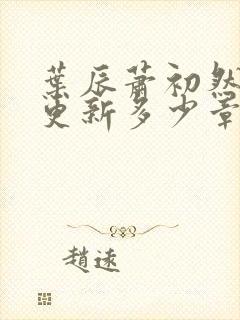 葉辰蕭初然
更新多少章
趙遠